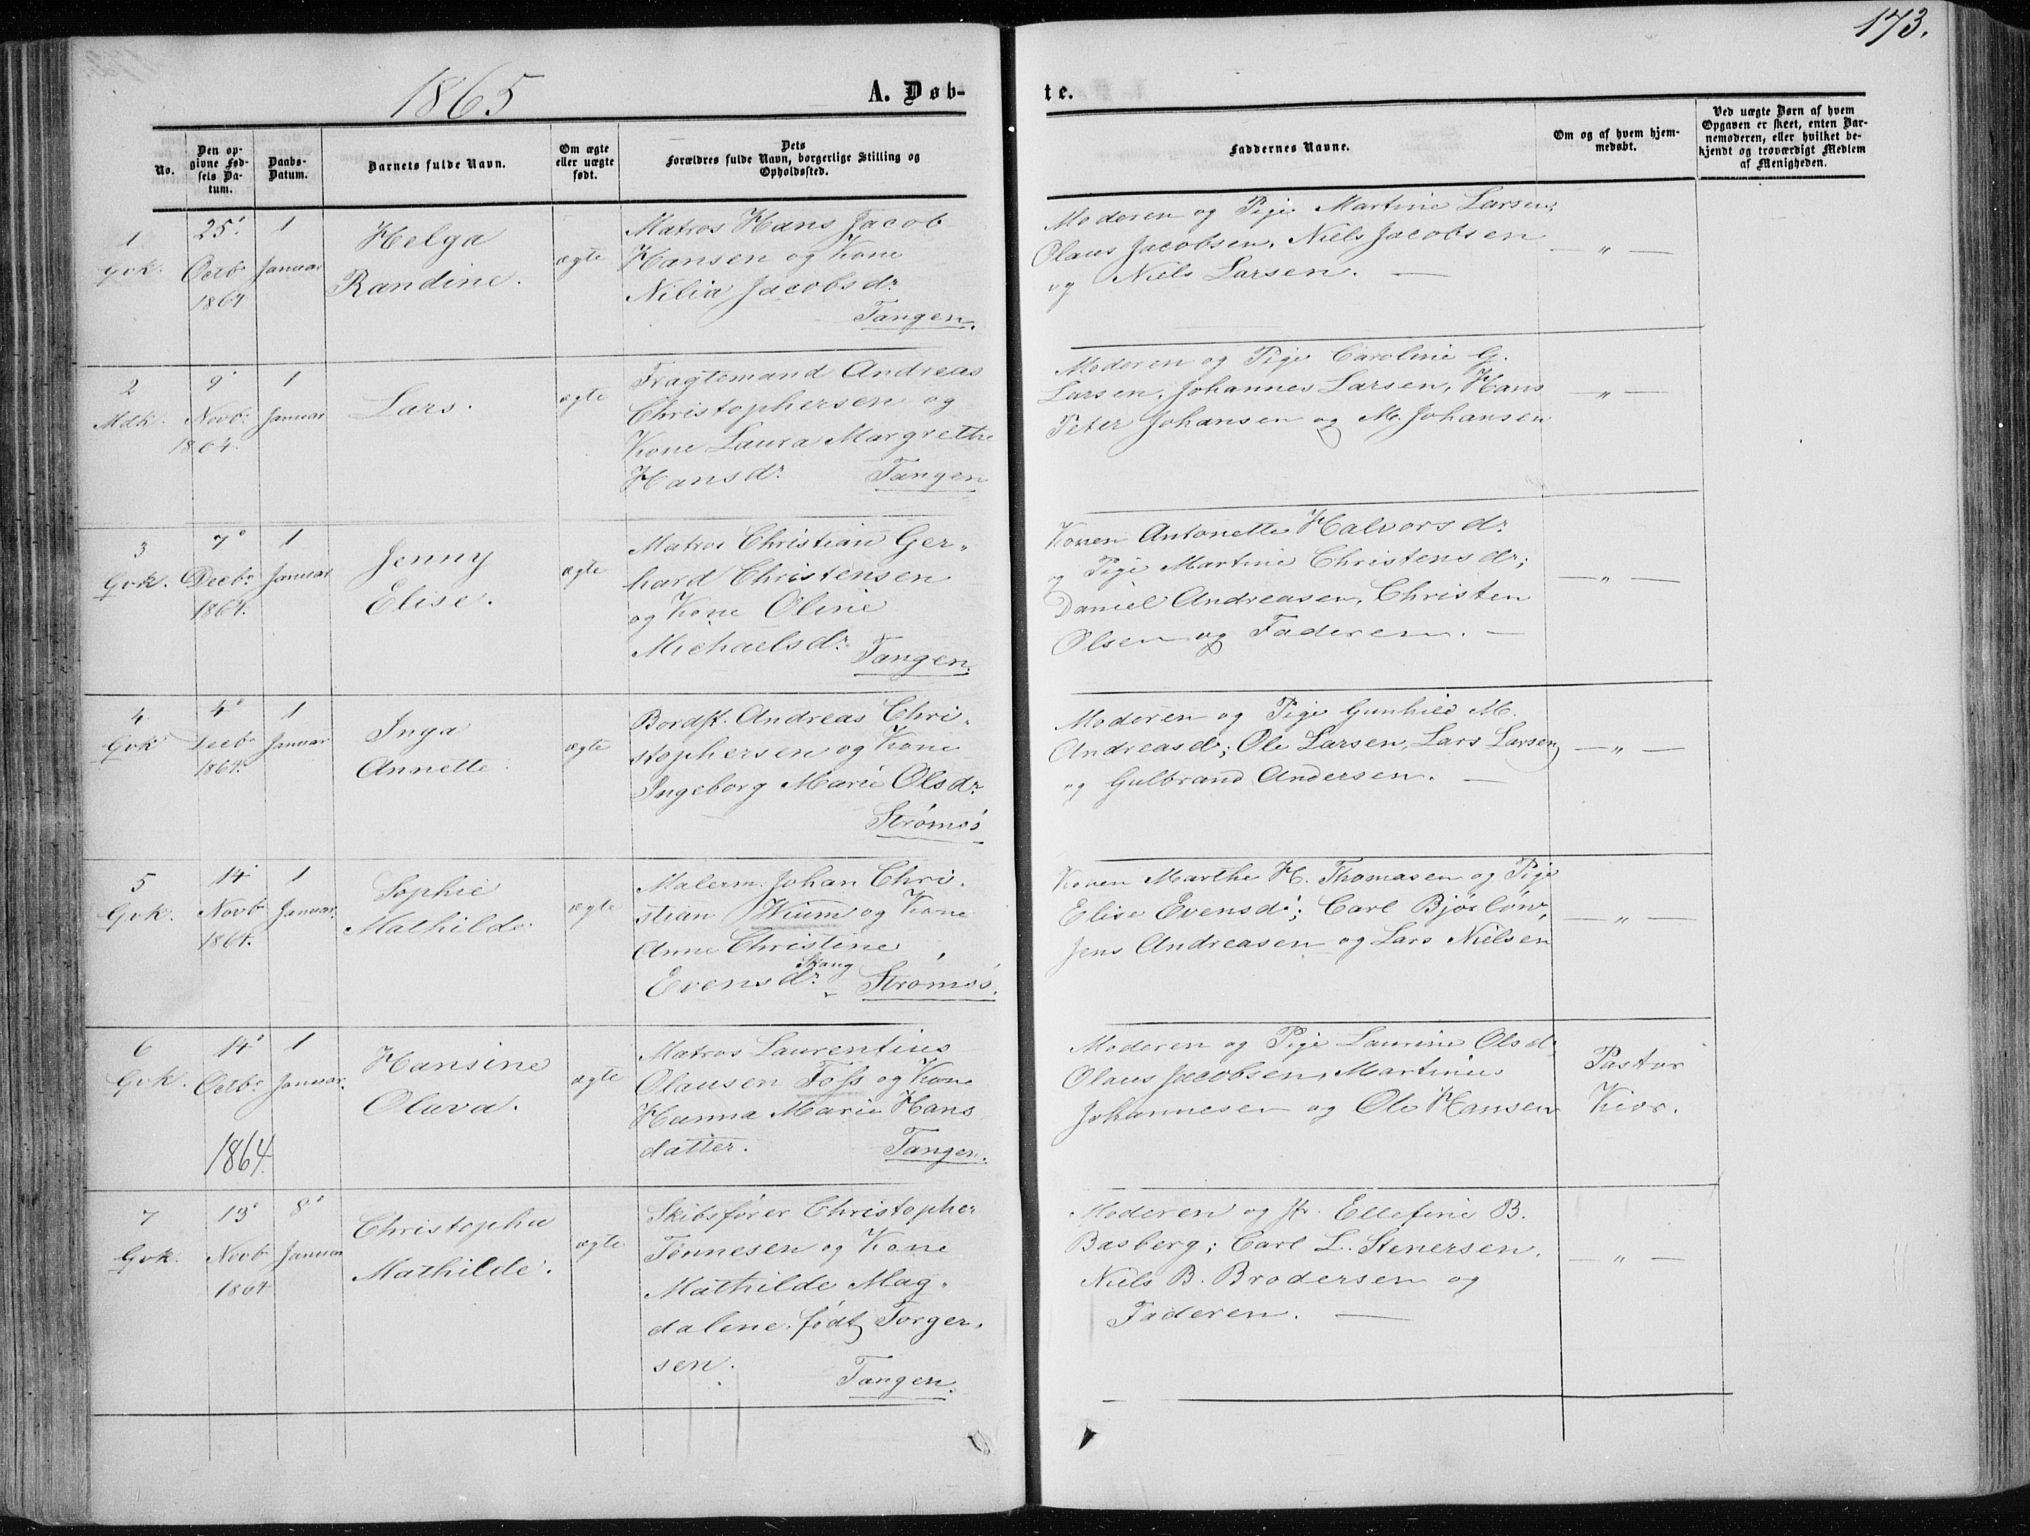 173.
1865
A. Døb-
te.
No.
Den op-
givne Fød-
sels Da-
tum.
Daabs-
Datum.
Barnets fulde Navn.
Om ægte
eller uægte
født.
Dets
Forældres fulde Navn, borgerlige Stilling og
Opholdssted.
Faddernes Navne.
Om og af hvem hjem-
medøbt.
Ved uægte Børn af hvem
Opgaven er skeet, enten Bar-
nemoderen, eller hvilket be-
kjendt og troværdigt Medlem
af Menigheden.
1
Gvk.
25'
Octbr
1864
1
Januar
Helga
Randine.
ægte
Matros Hans Jacob
Hansen og Kone
Nilia Jacobsdr
Tangen.
Moderen og Pige Martine Larsen;
Olaus Jacobsen, Niels Jacobsen
og Niels Larsen. —
— " —
2
Mdk.
9'
Novbr
1864.
1
Januar
Lars.
ægte
Fragtemand Andreas
Christophersen og
Kone Laura Margrethe
Hansdr. Tangen
Moderen og Pige Caroline G.
Larsen, Johannes Larsen, Hans
Peter Johansen og M. Johansen
— " —
3
Gvk.
7'
Decbr
1864.
1
Januar
Jenny
Elise.
ægte
Matros Christian Ger-
hard Christensen
og Kone Oline
Michaelsdr. Tangen.
Konen Antonette Halvorsdr
og Pige Martine Christensdr;
Daniel Andreasen, Christen
Olsen og Faderen. —
— " —
4
Gvk
4'
Decbr
1864.
1
Januar
Inga
Annette.
ægte
Bordst. Andreas Chri-
stophersen og Kone
Ingeborg Marie Olsdr.
Strømsö
Moderen og Pige Gunhild M.
Andreasd; Ole Larsen, Lars Larsen
og Gulbrand Andersen. —
— " —
5
Gvk.
14'
Novbr
1864.
1
Januar.
Sophie
Mathilde.
ægte
Malerm. Johan Chri-
stian Wium og Kone
Anne Christine
Evensdr. Skaug Strømsö.
Konen Marthe H. Thomasen og Pige
Elise Evensd; Carl Bjørlöw,
Jens Andreasen og Lars Nielsen
— " —
6
Gvk.
14'
Octbr
1864.
1
Januar.
Hansine
Olava.
ægte
Matros Laurentius
Olausen Foss og Kone
Hanna Marie Hans
datter. Tangen.
Moderen og Pige Laurine Olsd.
Olaus Jacobsen, Martinius
Johannesen og Ole Hansen
Pastor
Kiær.
7
Gvk.
13'
Novbr
1864
8'
Januar
Christopha
Mathilde.
ægte
Skibsfører Christopher
Tønnesen og Kone
Mathilde Mag-
dalene født Torger-
sen. Tangen.
Moderen og Jfr. Ellefine B.
Basberg; Carl L. Stenersen,
Niels B. Brodersen og
Faderen. —
— " —